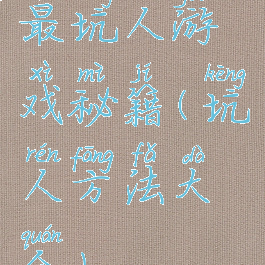 最坑人游
xì mì jí hēng
戏秘籍(坑
rén fāng fǎ dà
人方法大
quán
全)